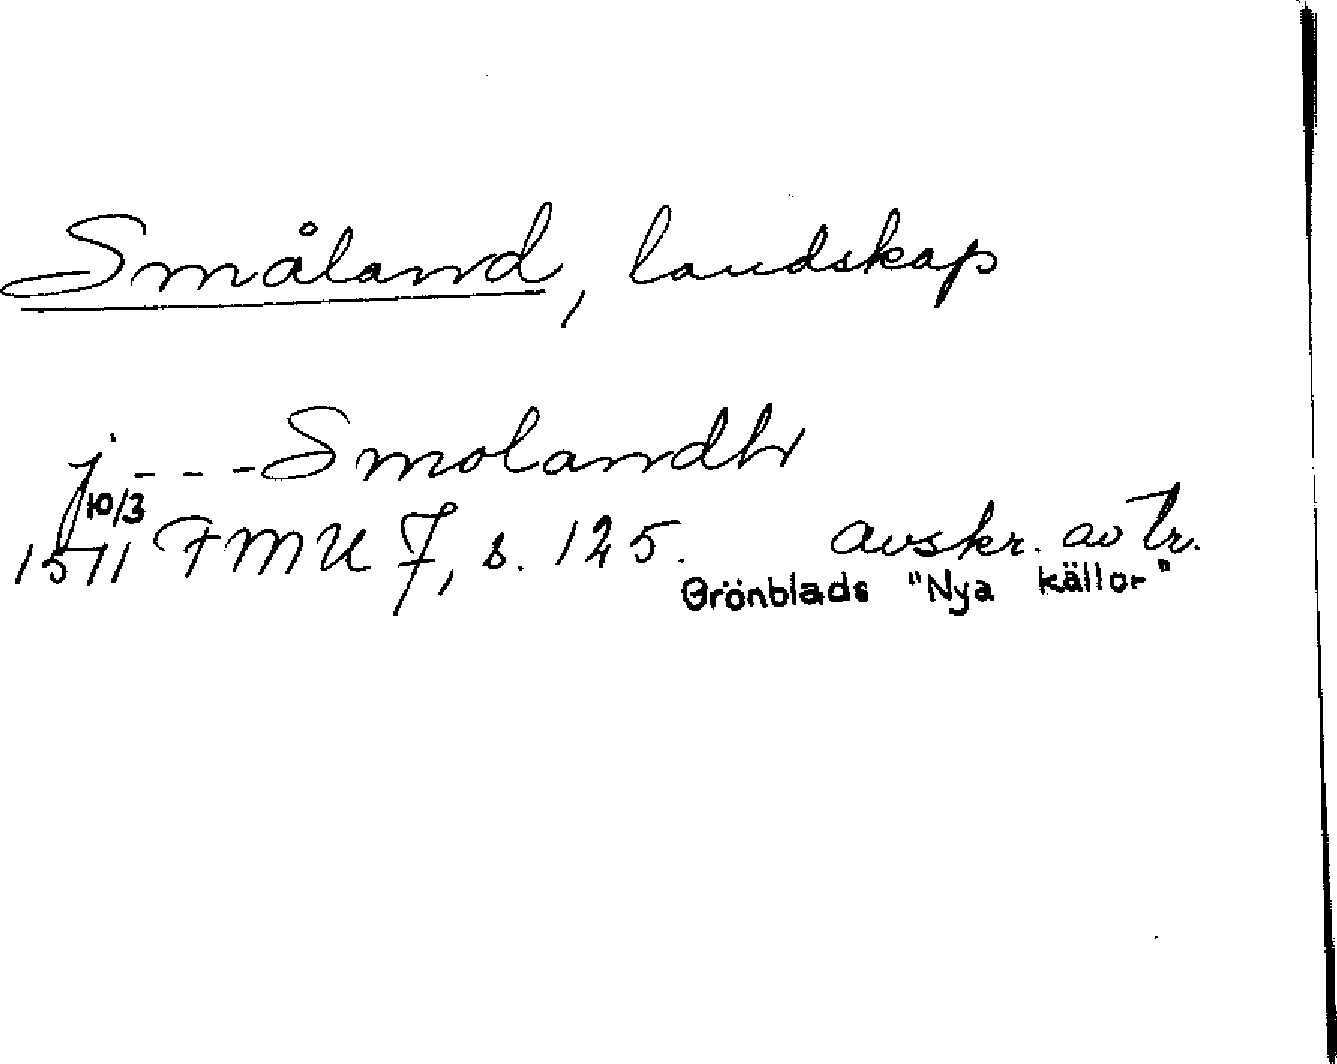 Småland, landskap
j - - - Smolandh
10/3
1511 FMU 7, s. 125. avskr. av tr.
Grönblads "Nya källor"